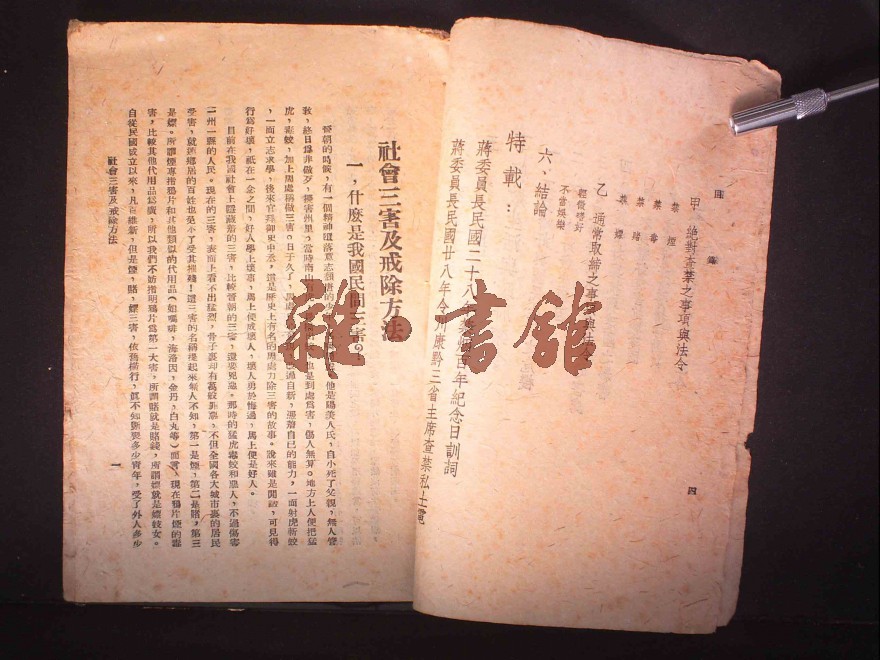 目錄
甲 絕對查禁之事項與法令
禁煙
禁毒
禁賭
禁娼
乙 通常取締之事項與法令
輕微嗜好
不當娛樂
六、結論
特載:
蔣委員長民國二十八年 百年紀念日訓詞
蔣委員長民國廿八年令川康黔三省主席查禁私土電
四
社會三害及戒除方法
一,什麼是我國民間三害。
晉朝的時候,有一個精神墮落意志頹唐的少 他是陽羨人氏,自小死了父親,無人管
教,終日爲非做歹,擾害州里,當時南山有 也是到處爲害,傷人無算。地方上人便把猛
虎,毒蛟,加上周處稱做三害。日子久了,周處 過自新,憑藉自己的能力,一面射虎斬蛟
,一面立志求學,後來官拜御史中丞,這是歷史上有名的周處力除三害的故事。說來雖是閒話,可見得
行爲好壞,祗在一念之間,好人學上壞事,馬上便成壞人,壞人勇於悔過,馬上便是好人。
目前在我國社會上隱藏着的三害,比較晉朝的三害,還要兇惡。那時的猛虎毒蛟和惡人,不過傷害
一州一縣的人民。現在的三害,表面上看不出猛烈,骨子裏却有萬般罪惡,不但全國各大城市裏的居民
受害,就連鄉居的百姓也免不了受其摧殘!這三害的名稱提起來無人不知,第一是煙,第二是賭,第三
是嫖。所謂煙專指鴉片和其他類似的代用品(如嗎啡,海洛因,金丹,白丸等)而言。現在鴉片煙的毒
害,比較其他代用品爲廣,所以我們不妨指明鴉片爲第一大害,所謂賭就是賭錢,所謂嫖就是嫖妓女。
自從民國成立以來,凡百維新,但是煙,賭,嫖三害,依舊橫行,眞不知斷喪多少靑年,受了外人多少
社會三害及戒除方法
一
雜·書館